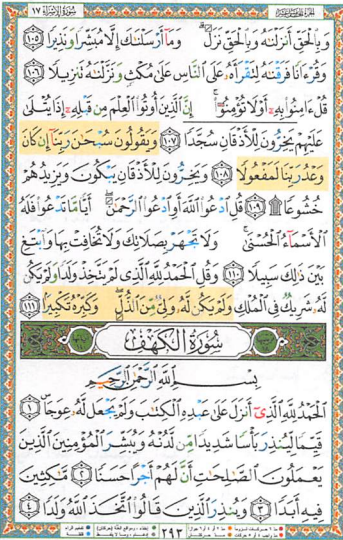 الجزء الخامس عشر
سورة الإسراء ١٧
وَبِالْحَقِّ أَنزَلْنَاهُ وَبِالْحَقِّ نَزَلَ ۗ وَمَا أَرْسَلْنَاكَ إِلَّا مُبَشِّرًا وَنَذِيرًا ١٠٥
وَقُرْءَانًا فَرَقْنَاهُ لِتَقْرَأَهُ عَلَى النَّاسِ عَلَىٰ مُكْثٍ وَنَزَّلْنَاهُ تَنزِيلًا ١٠٦
قُلْ ءَامِنُوا بِهِ أَوْ لَا تُؤْمِنُوا ۚ إِنَّ الَّذِينَ أُوتُوا الْعِلْمَ مِن قَبْلِهِ إِذَا يُتْلَىٰ
عَلَيْهِمْ يَخِرُّونَ لِلْأَذْقَانِ سُجَّدًا ١٠٧ وَيَقُولُونَ سُبْحَٰنَ رَبِّنَا إِن كَانَ
وَعْدُ رَبِّنَا لَمَفْعُولًا ١٠٨ وَيَخِرُّونَ لِلْأَذْقَانِ يَبْكُونَ وَيَزِيدُهُمْ
خُشُوعًا ۩ ١٠٩ قُلِ ادْعُوا اللَّهَ أَوِ ادْعُوا الرَّحْمَٰنَ ۖ أَيًّا مَّا تَدْعُوا فَلَهُ
الْأَسْمَاءُ الْحُسْنَىٰ ۚ وَلَا تَجْهَرْ بِصَلَاتِكَ وَلَا تُخَافِتْ بِهَا وَابْتَغِ
بَيْنَ ذَٰلِكَ سَبِيلًا ١١٠ وَقُلِ الْحَمْدُ لِلَّهِ الَّذِي لَمْ يَتَّخِذْ وَلَدًا وَلَمْ يَكُن
لَّهُ شَرِيكٌ فِي الْمُلْكِ وَلَمْ يَكُن لَّهُ وَلِيٌّ مِّنَ الذُّلِّ ۖ وَكَبِّرْهُ تَكْبِيرًا ١١١
سُورَةُ الْكَهْفِ
بِسْمِ اللَّهِ الرَّحْمَٰنِ الرَّحِيمِ
الْحَمْدُ لِلَّهِ الَّذِي أَنزَلَ عَلَىٰ عَبْدِهِ الْكِتَٰبَ وَلَمْ يَجْعَل لَّهُ عِوَجًا ۜ ١
قَيِّمًا لِّيُنذِرَ بَأْسًا شَدِيدًا مِّن لَّدُنْهُ وَيُبَشِّرَ الْمُؤْمِنِينَ الَّذِينَ
يَعْمَلُونَ الصَّٰلِحَٰتِ أَنَّ لَهُمْ أَجْرًا حَسَنًا ٢ مَّٰكِثِينَ
فِيهِ أَبَدًا ٣ وَيُنذِرَ الَّذِينَ قَالُوا اتَّخَذَ اللَّهُ وَلَدًا ٤
٢٩٣